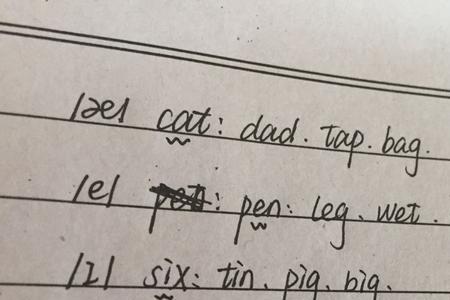 /æ/ cat: dad. tap. bag.
/e/ : pen: leg. wet.
/ɪ/ six: tin. pig. big.